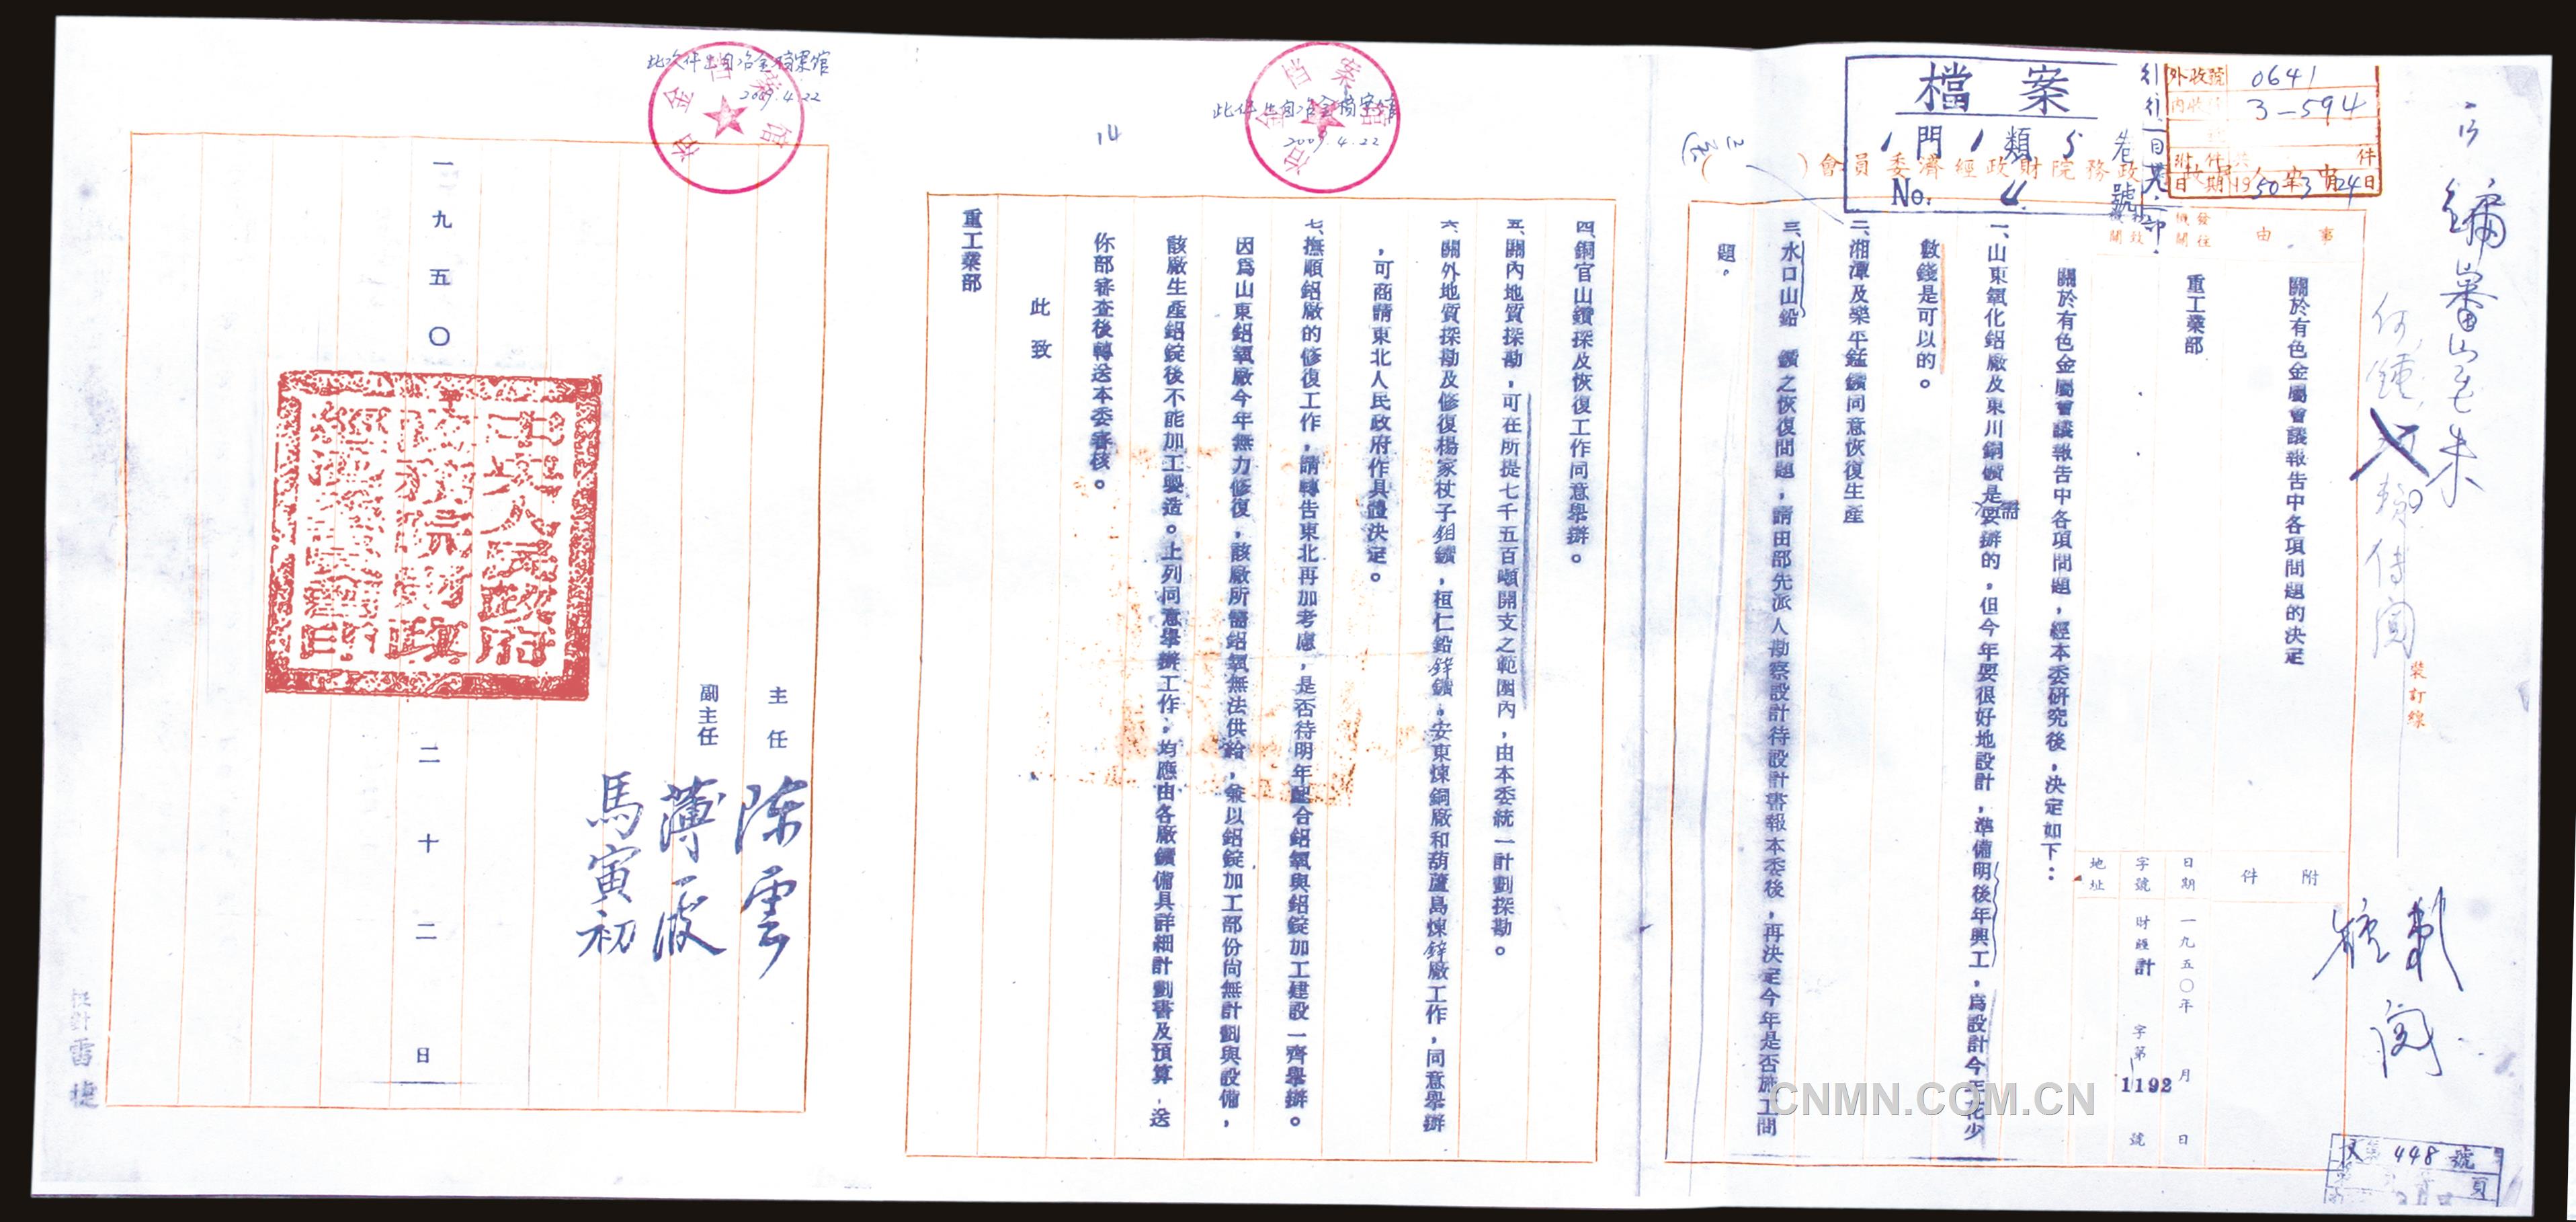 檔案
1門1類5卷
No. 4 號
外收號 0641
內收 3-594
附件 共 件
日期 1950年3月24日
(  )會員委濟經政財院務政
事由
發往機關
關於有色金屬會議報告中各項問題的決定
重工業部
附件
日期 一九五〇年 月 日
字號 財經計 字第1192號
地址
裝訂線
關於有色金屬會議報告中各項問題，經本委研究後，決定如下：
一、山東氧化鋁廠及東川銅礦是需要辦的，但今年要很好地設計，準備明後年興工，為設計今年花少
數錢是可以的。
二、湘潭及樂平錳鑛同意恢復生產
三、水口山鉛 鑛之恢復問題，請由部先派人勘察設計待設計書報本委後，再決定今年是否施工問
題。
四、銅官山鑽探及恢復工作同意舉辦。
五、關內地質探勘，可在所提七千五百噸開支之範圍內，由本委統一計劃探勘。
六、關外地質探勘及修復楊家杖子鉬鑛，桓仁鉛鋅鑛，安東煉銅廠和葫蘆島煉鋅廠工作，同意舉辦
，可商請東北人民政府作具體決定。
七、撫順鋁廠的修復工作，請轉告東北再加考慮，是否待明年配合鋁氧與鋁錠加工建設一齊舉辦。
因為山東鋁氧廠今年無力修復，該廠所需鋁氧無法供給，兼以鋁錠加工部份尚無計劃與設備，
該廠生產鋁錠後不能加工製造。上列同意舉辦工作，均應由各廠鑛備具詳細計劃書及預算，送
你部審查後轉送本委審核。
此致
重工業部
主任 陳雲
副主任 薄一波
馬寅初
中央人民政府
政務院財政
經濟委員會印
一九五〇 二十二日
冶金档案馆
此件出自冶金档案馆
2009.4.22
冶金档案馆
此次件出自冶金档案馆
2009.4.22
14
448號
頁
CNMN.COM.CN